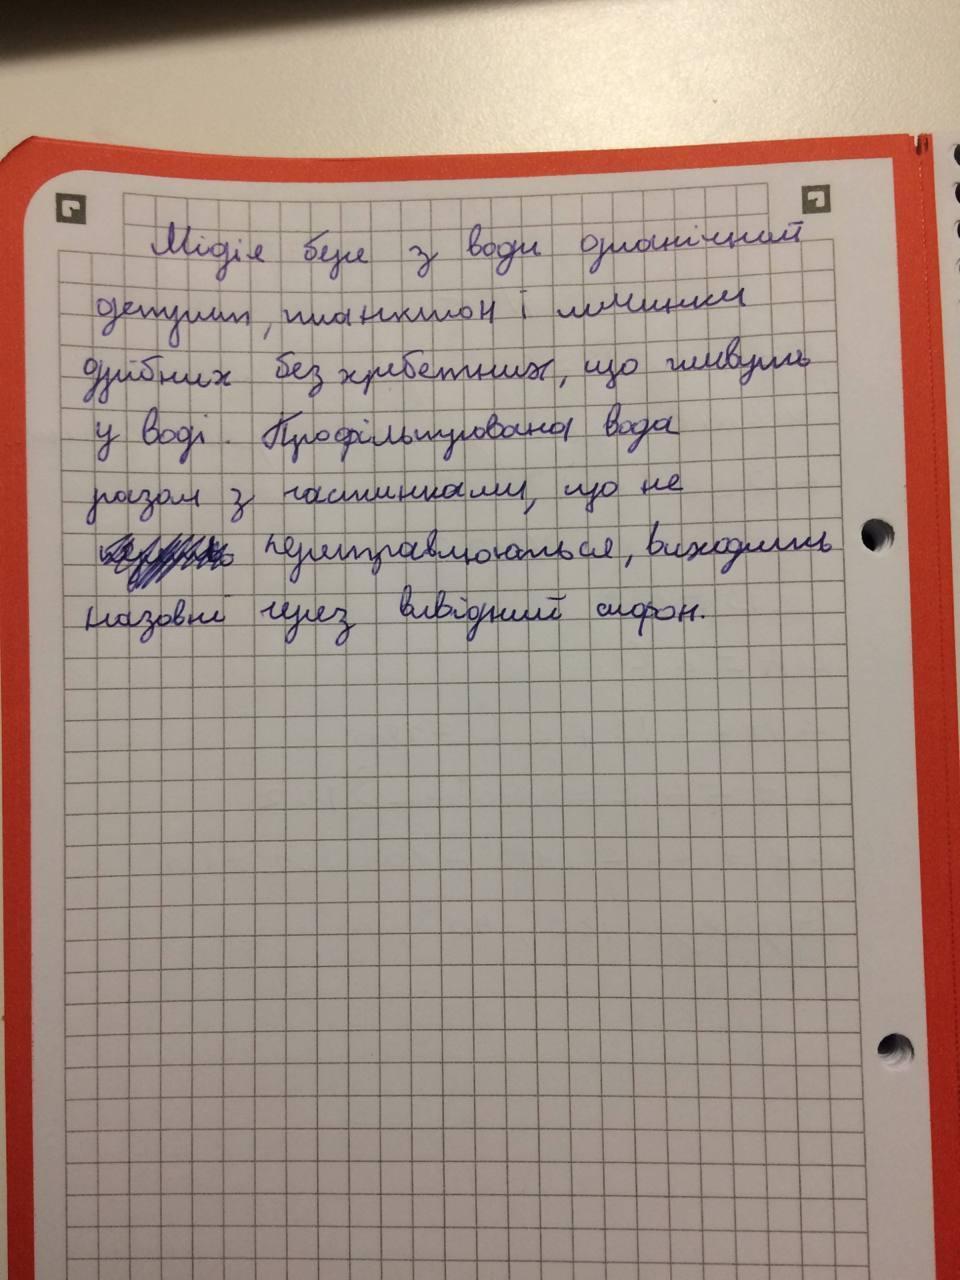 Мідія бере з води органічний
детрит, планктон і личинки
дрібних безхребетних, що живуть
у воді. Профільтрована вода
разом з частинками, що не
перетравлюються, виходить
назовні через вивідний сифон.